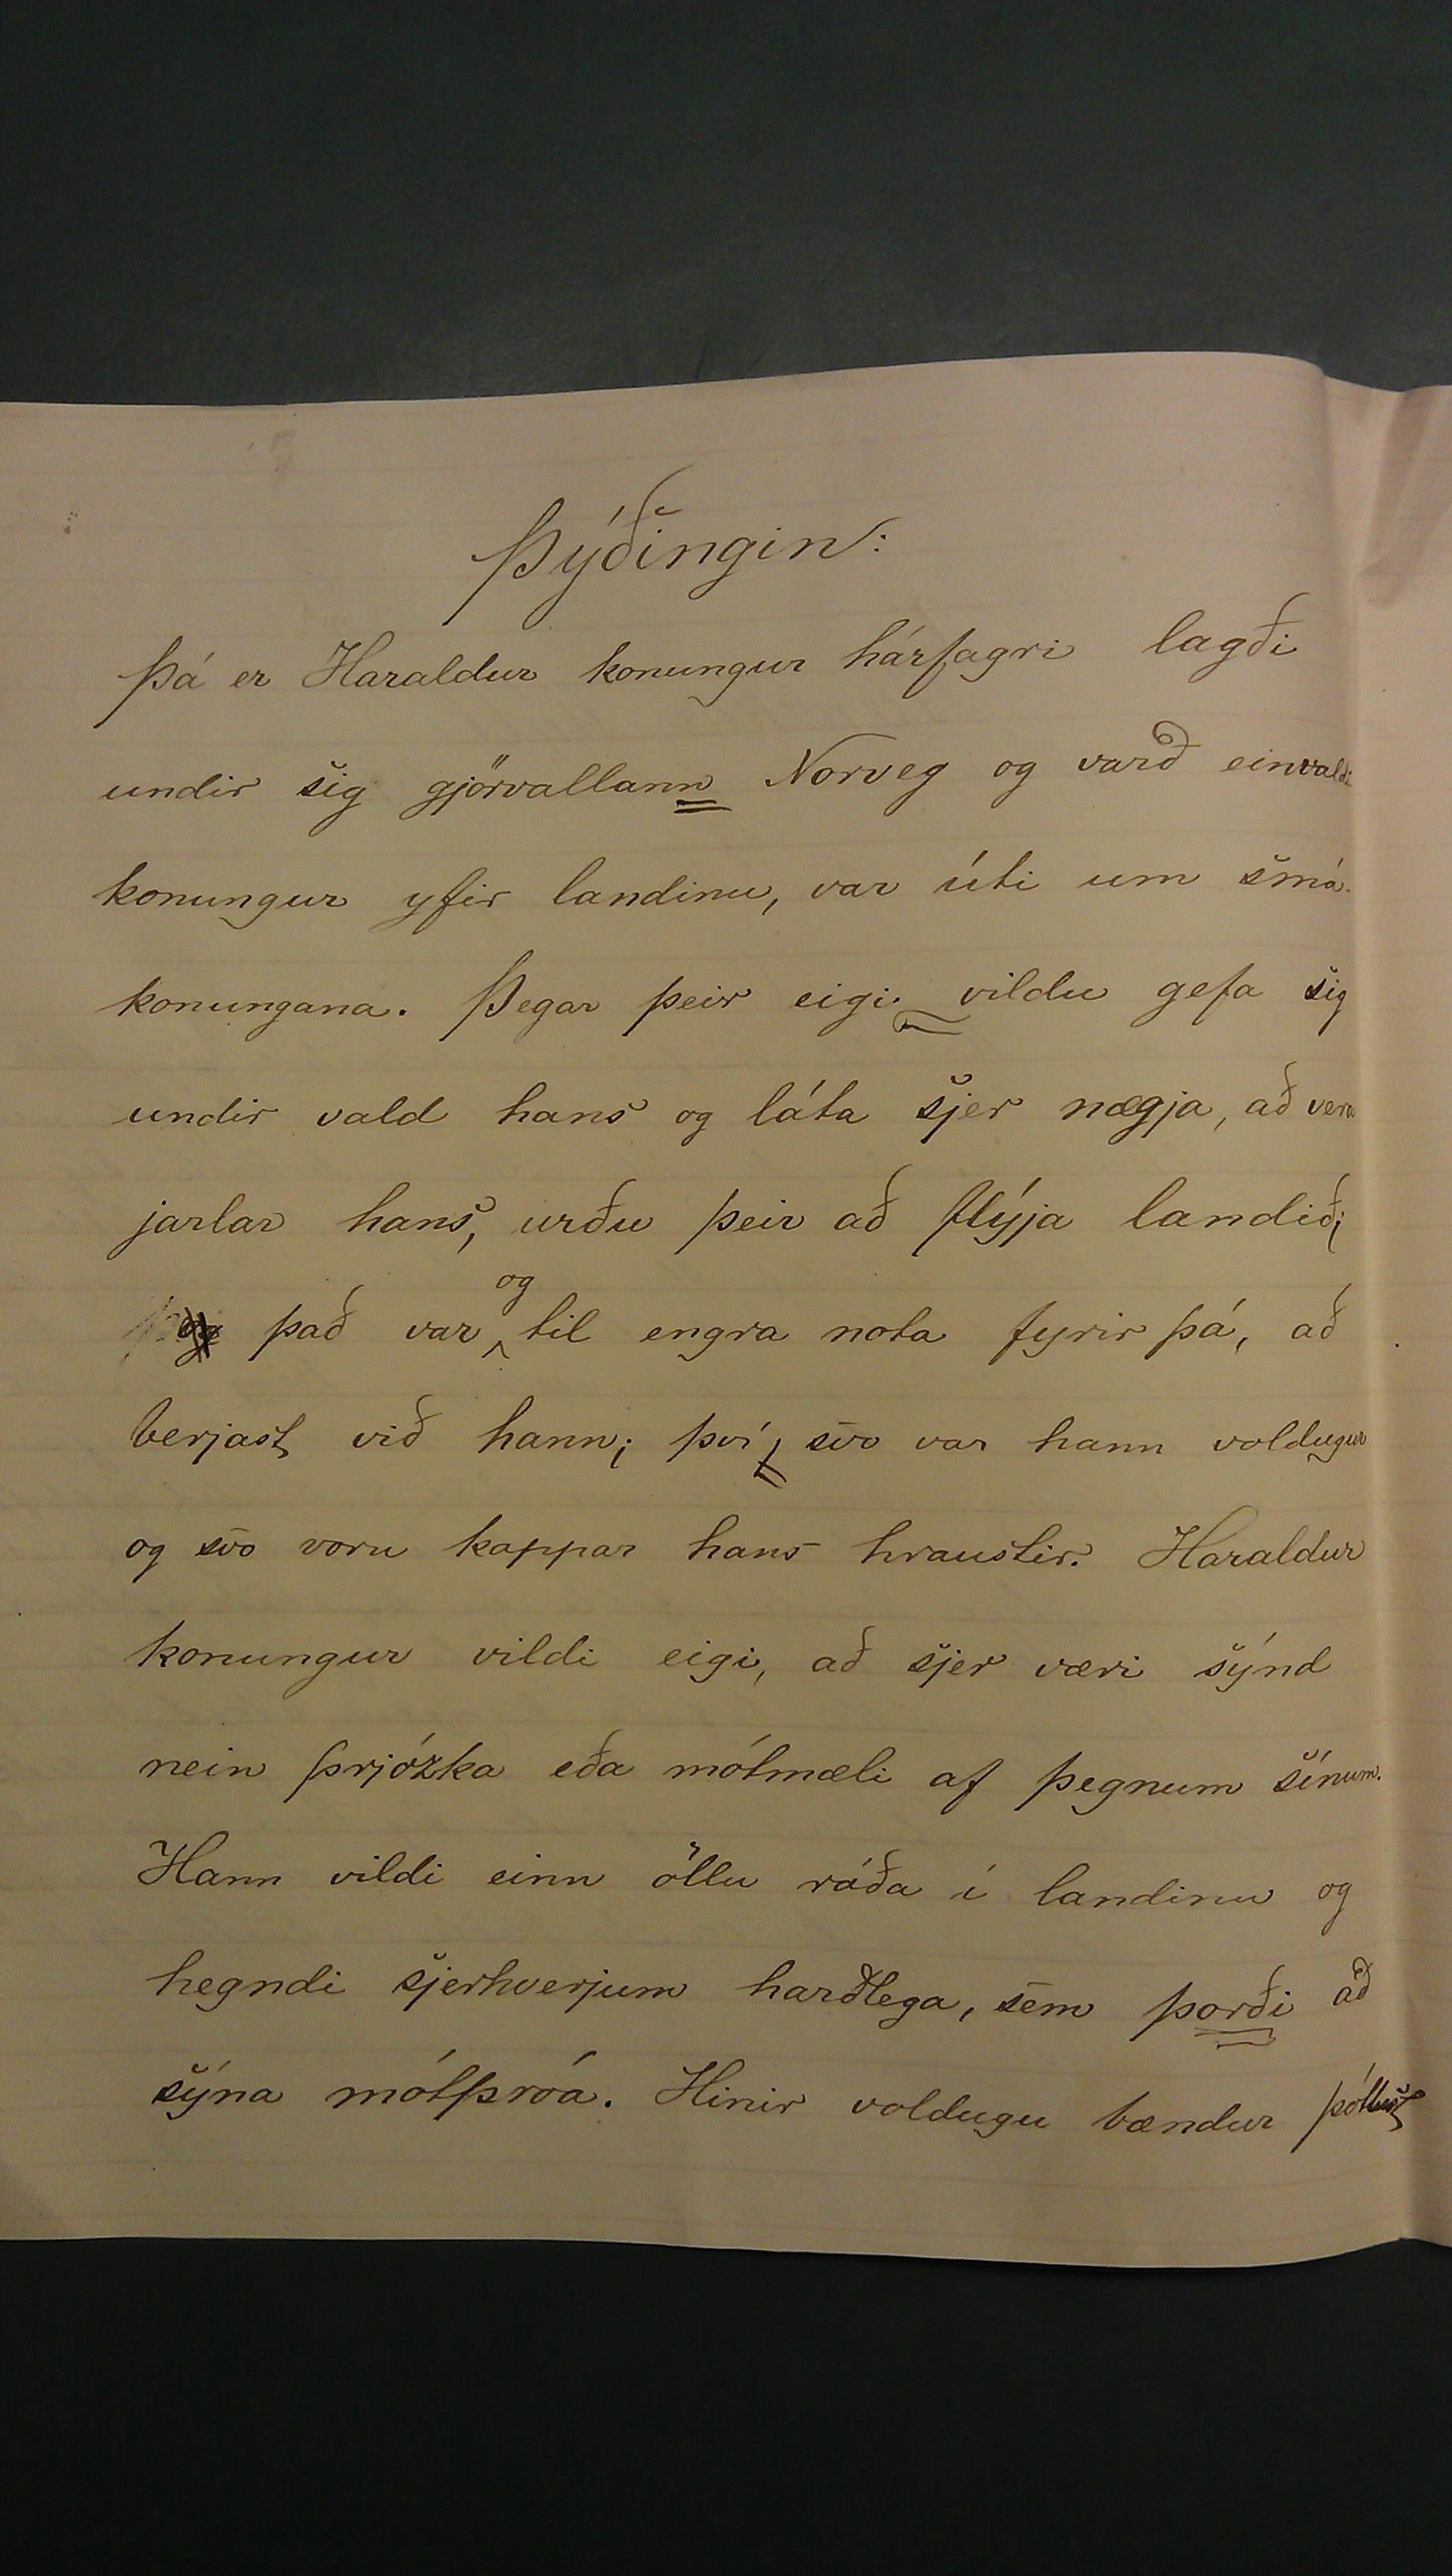 Þýðingin:
Þá er Haraldur konungur hárfagri lagði
undir sig gjörvallann Norveg og varð einvalds
konungur yfir landinu, var úti um smá-
konungana. Þegar þeir eigi vildu gefa sig
undir vald hans og láta sjer nægja, að vera
jarlar hans, urðu þeir að flýja landið;
það var og til engra nota fyrir þá, að
berjast við hann; því svo var hann voldugur
og svo voru kappar hans hraustir. Haraldur
konungur vildi eigi, að sjer væri sýnd
nein þrjózka eða mótmæli af þegnum sínum.
Hann vildi einn öllu ráða í landinu og
hegndi sjerhverjum harðlega, sem þorði að
sýna mótþróa. Hinir voldugu bændur þóttust